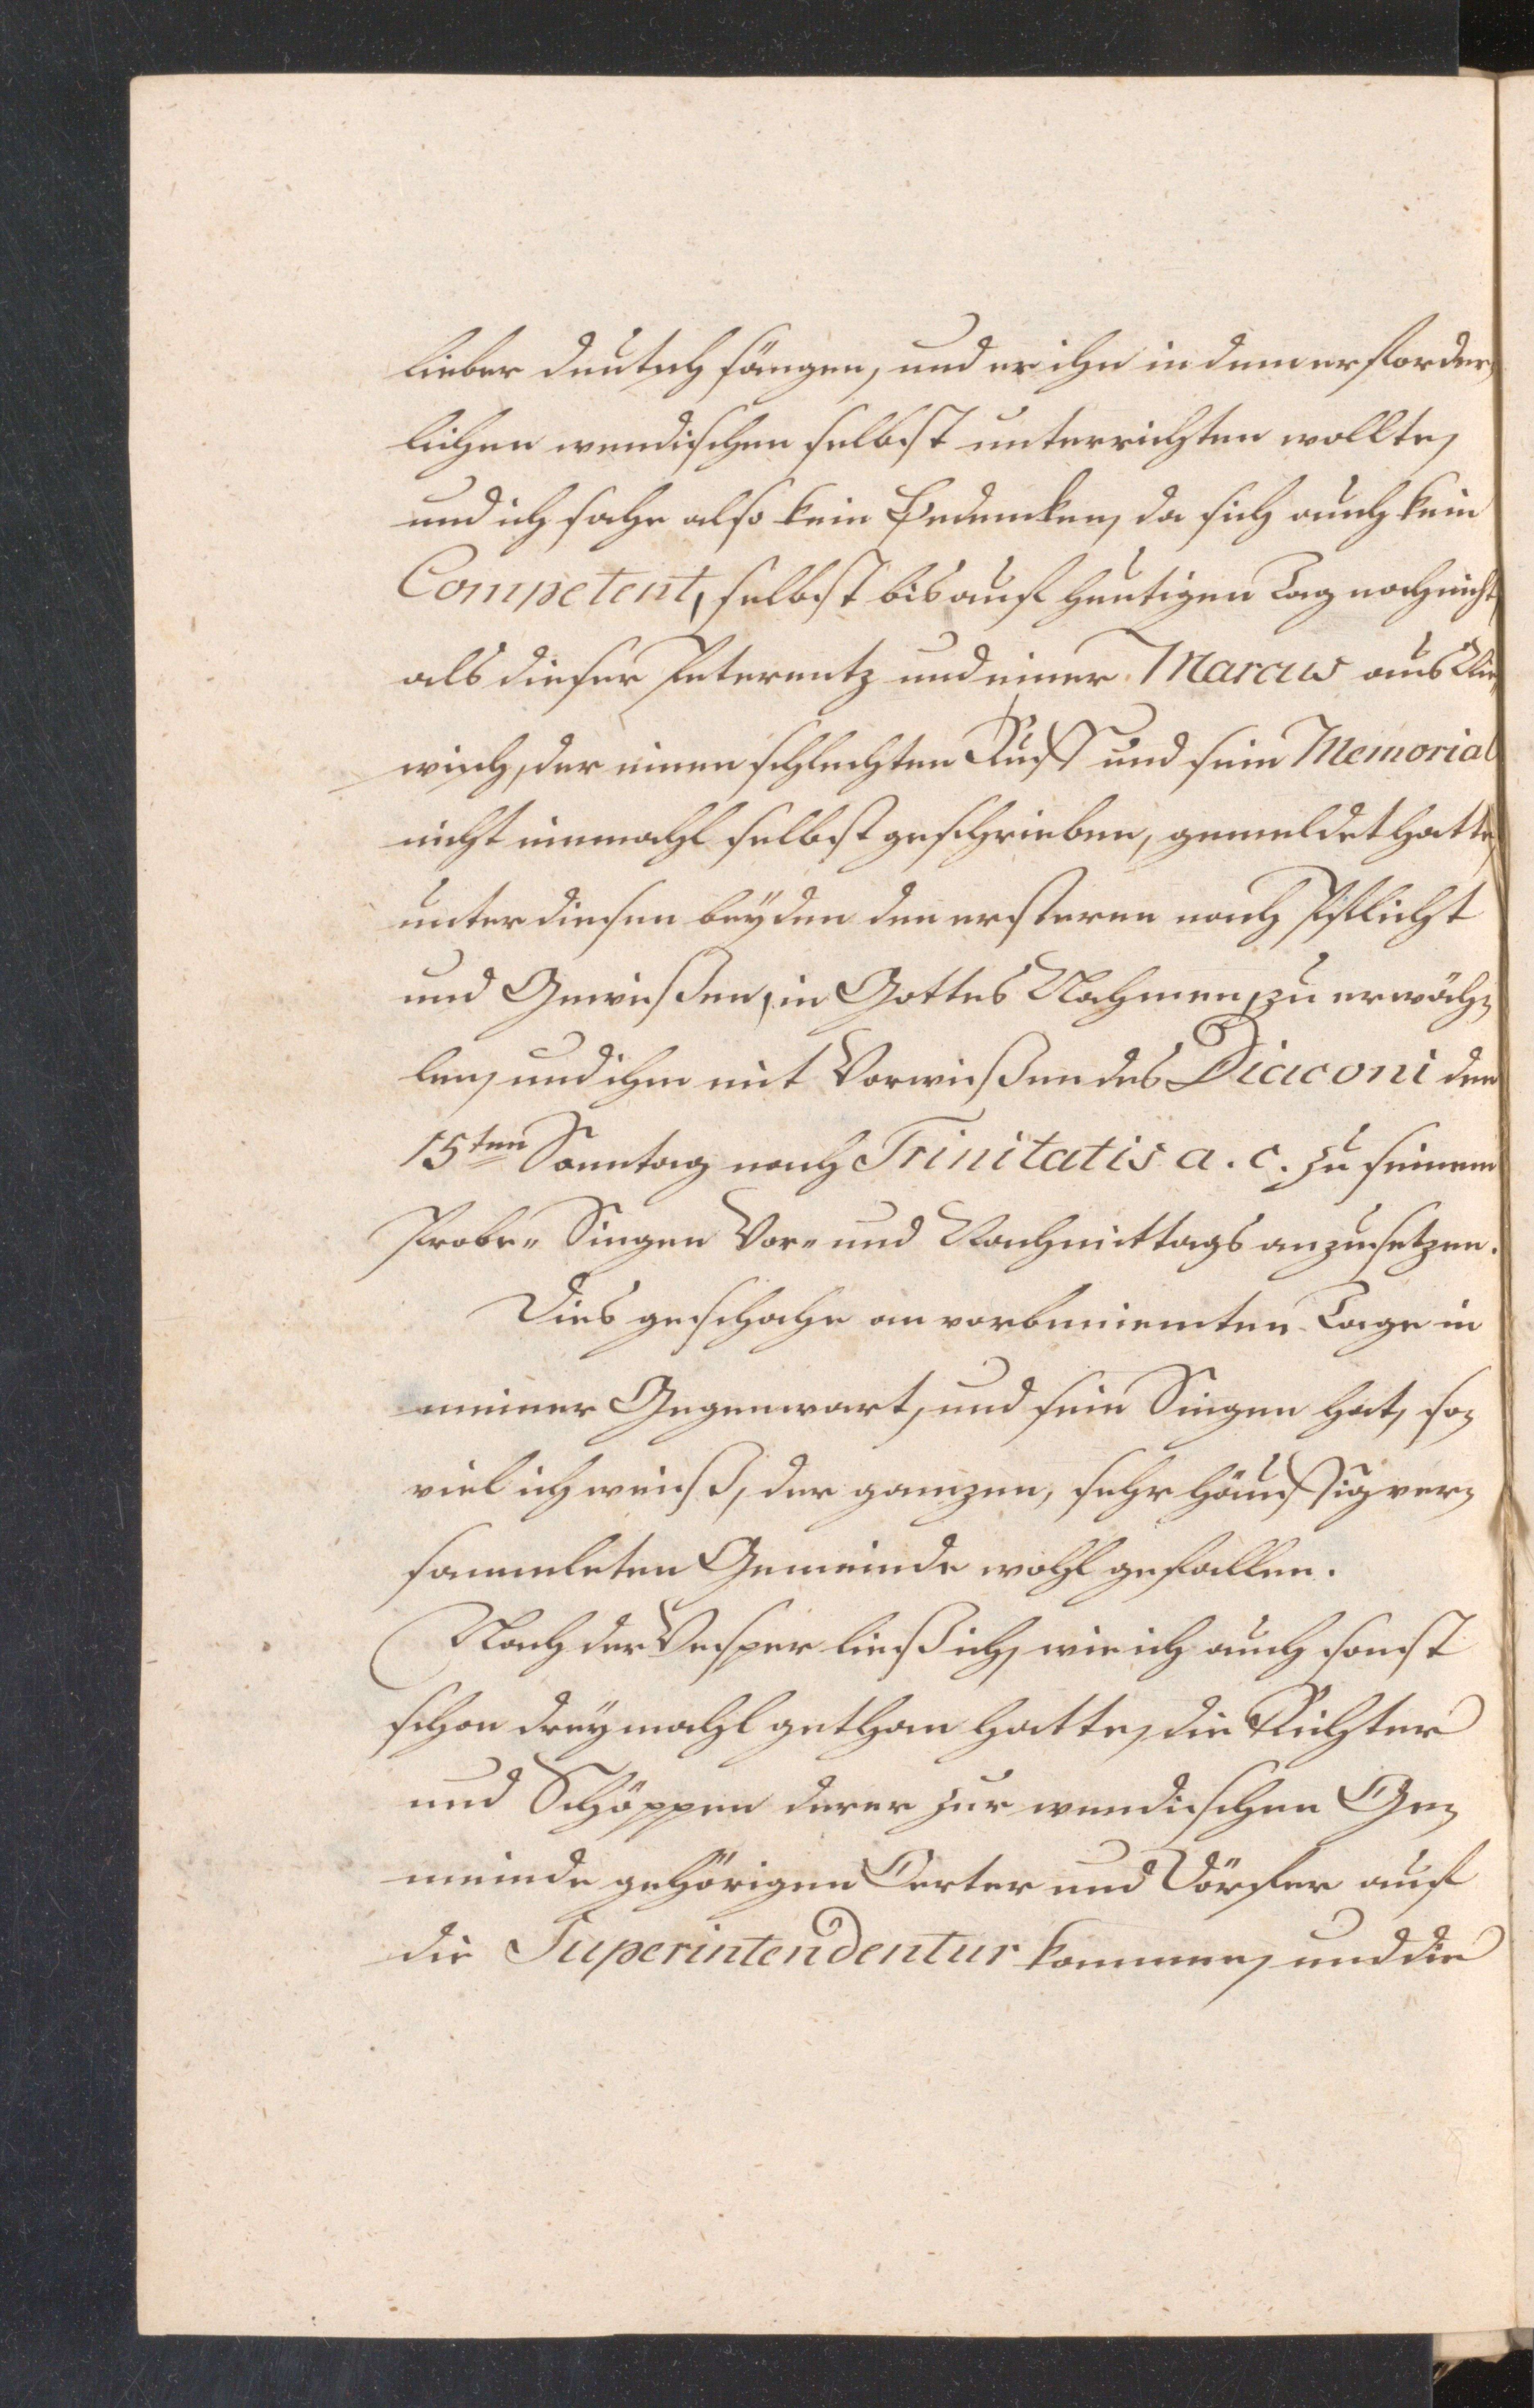 lieber deutsch sängen, und er ihn in dem erforder,
lichen wendischen selbst unterrichten wollte,
und ich sahe also kein Bedencken, da sich auch kein
Competent, selbst bis auf heutigen Tag noch nicht,
als dieser Peterentz und einer Marcus aus
wisch, der einen schlechten Ruff und sein Memorial
nicht einmahl selbst geschrieben, gemeldet hatte,
unter diesen beyden den ersteren nach Pflicht
und Gewißen, in Gottes Nahmen, zu erwäh=
len, und ihm mit Vorwißen des Diaconi den
15ten Sonntag nach Trinitatis a. c. zu seinem
Probe= Singen Vor= und Nachmittags anzusetzen.
Dies geschahe an vorbeniemten Tage in
meiner Gegenwart, und sein Singen hat, so=
viel ich weiß, der ganzen, sehr häuffig ver=
sammleten Gemeinde wohl gefallen.
Nach der Vesper ließ ich, wie ich auch sonst
schon dreymahl gethan hatte, die Richter
und Schöppen derer zur wendischen Ge=
meinde gehörigen Oerter und Dörfer auf
die Superintendentur kommen, und die